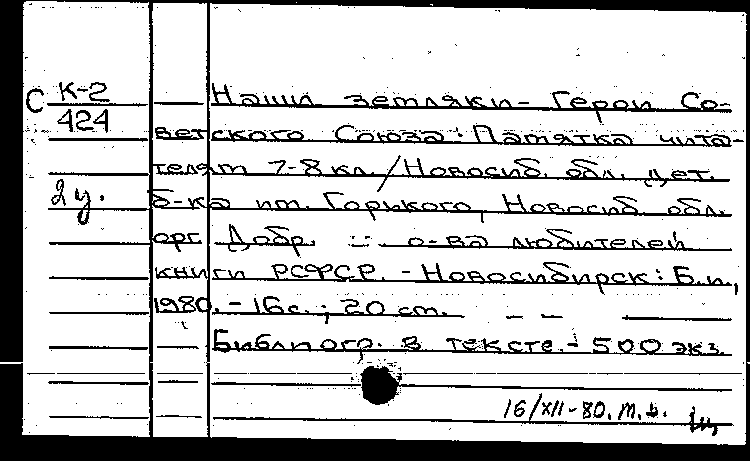 С К-2
424
2 у.
Наши земляки - Герои Со-
ветского Союза: Памятка чита-
телям 7-8 кл. / Новосиб. обл. дет.
б-ка им. Горького, Новосиб. обл.
орг. Добр. о-ва любителей
книги РСФСР. - Новосибирск: Б.и.,
1980. - 16 с.; 20 см.
Библиогр. в тексте. - 500 экз.
16/XII-80.